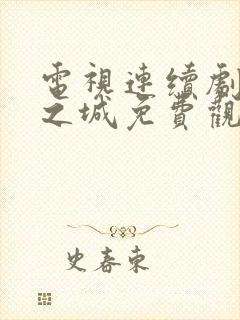 電視連續劇
之城免費觀
史春東